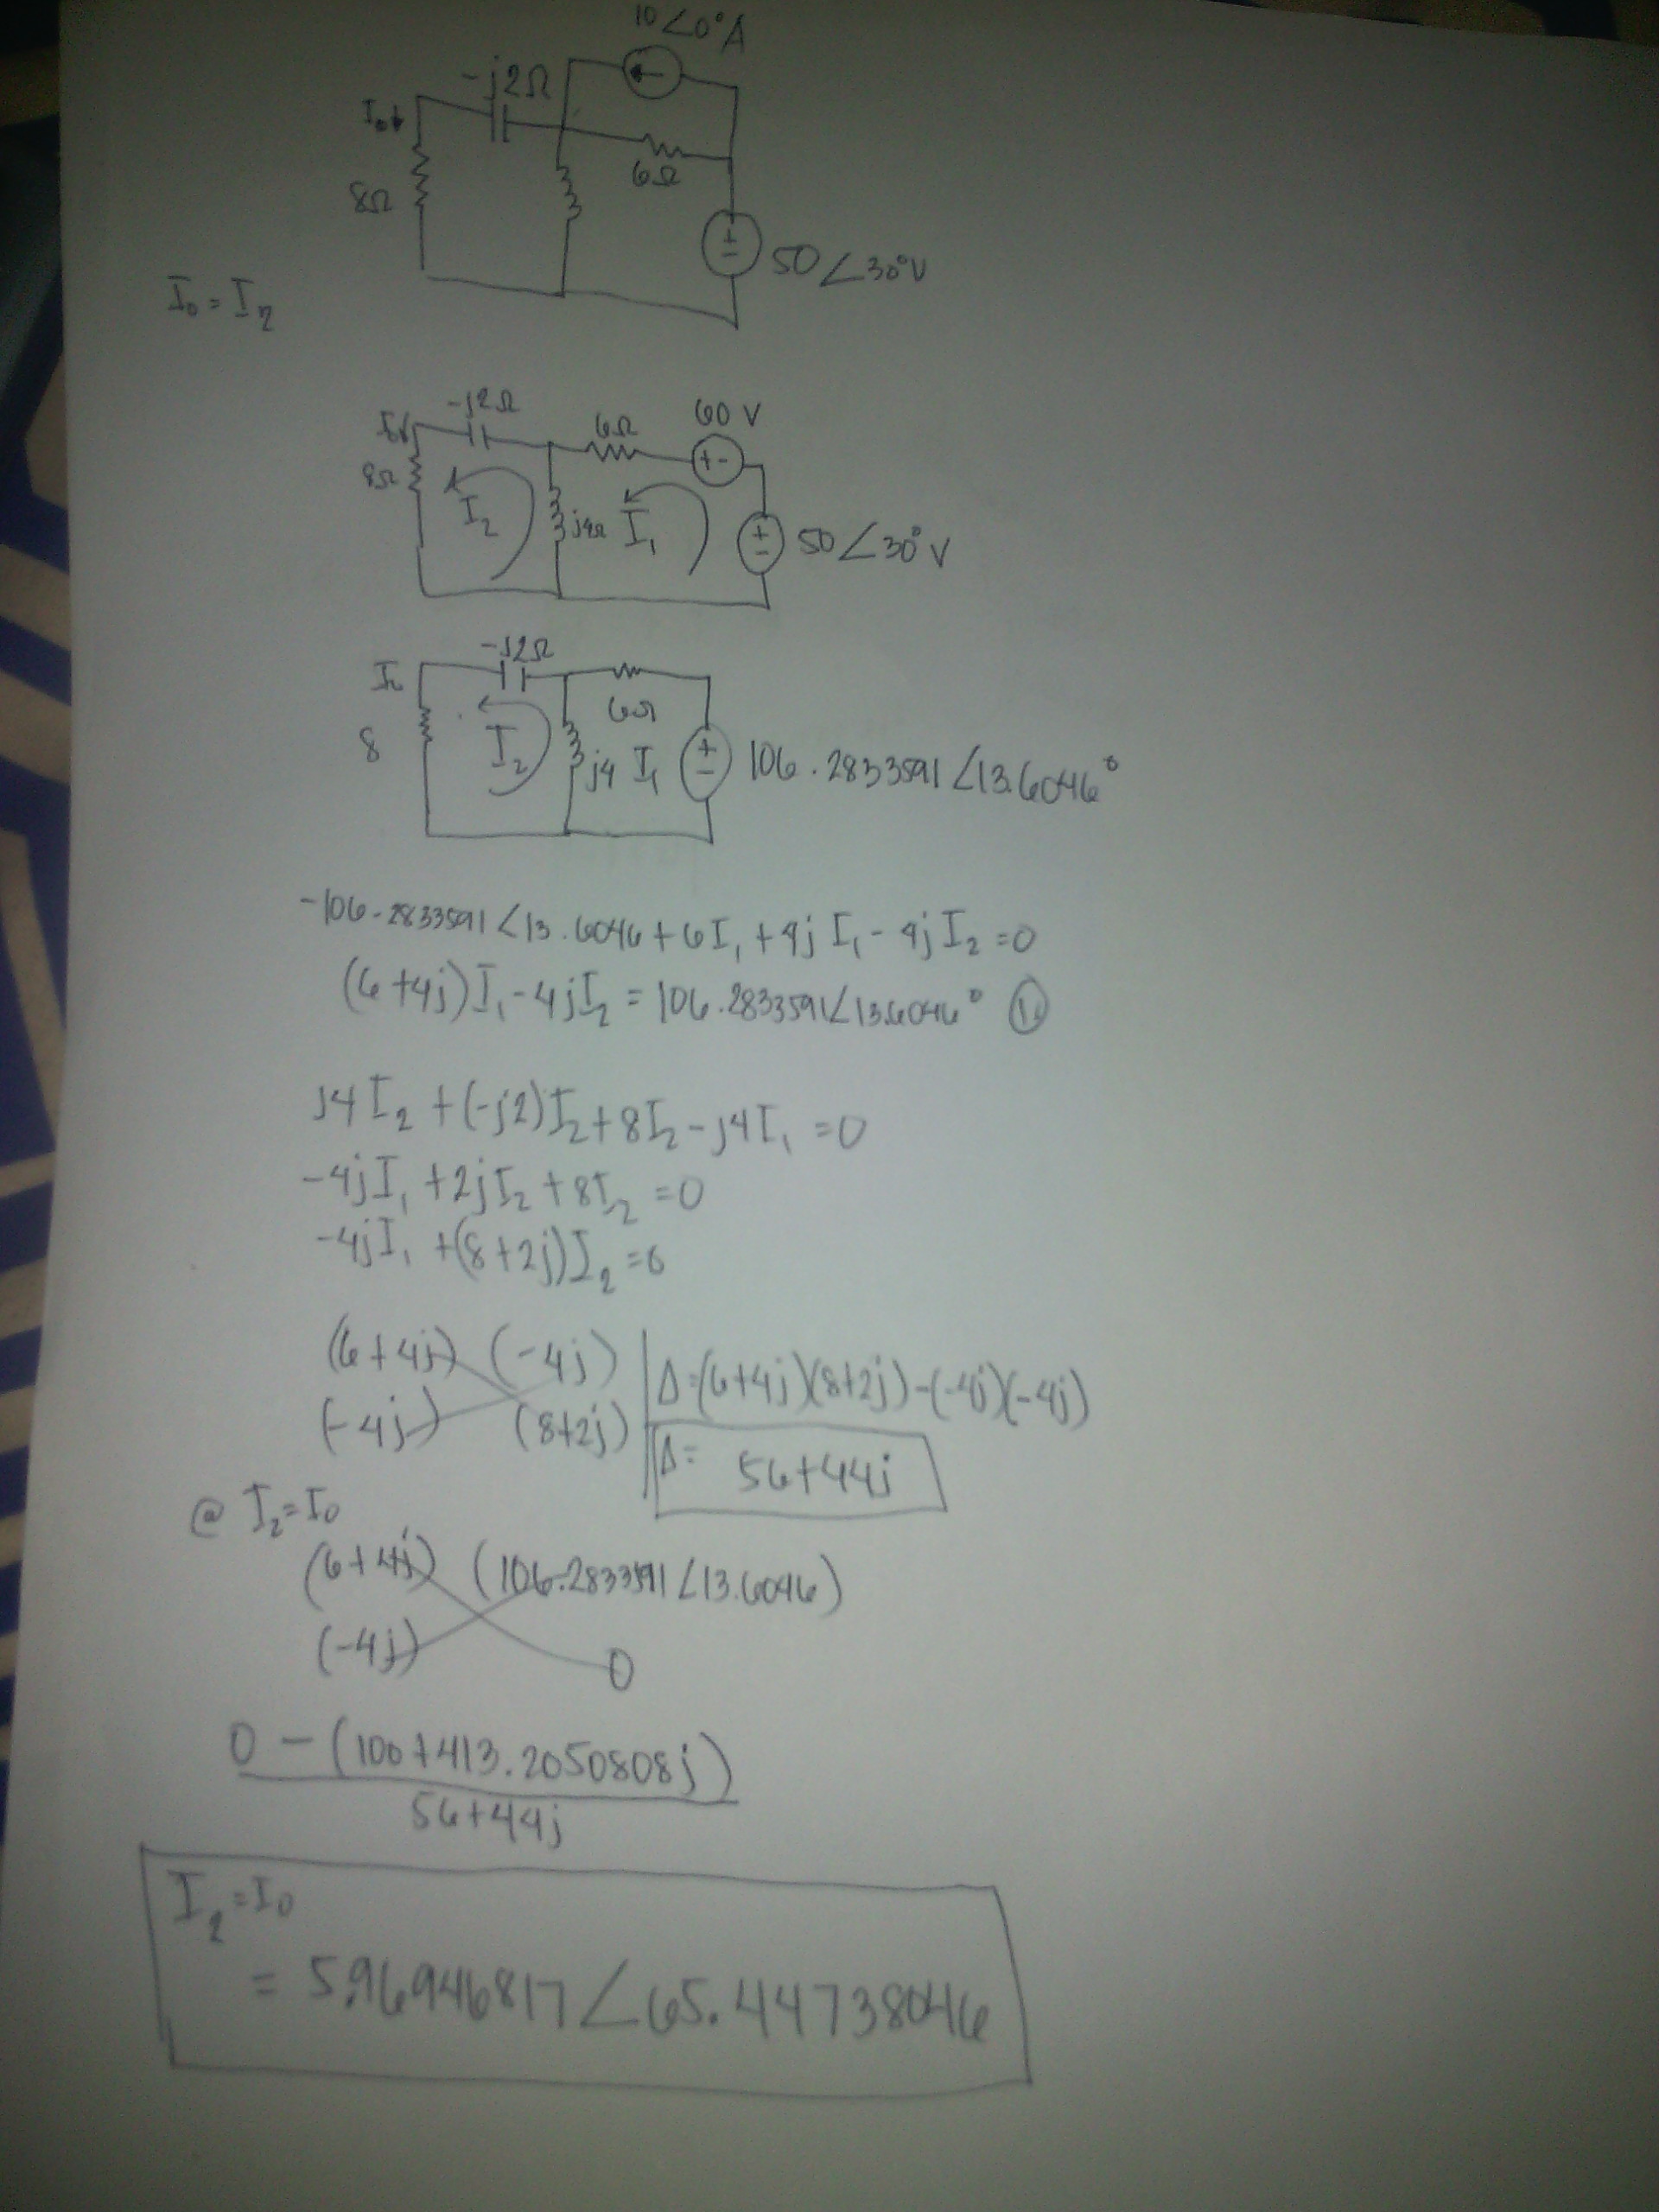 10∠0°A
-j2Ω
I₀↓
6Ω
8Ω
+
-
50∠30°V
I₀ = I₂
-j2Ω
6Ω
60 V
I₀↓
+ -
8Ω
I₂
j4Ω
I₁
+
-
50∠30°V
-j2Ω
6Ω
8
I₂
j4
I₁
+
-
106.2833591∠13.6046°
-106.2833591∠13.6046 + 6I₁ + 4jI₁ - 4jI₂ = 0
(6+4j)I₁ - 4jI₂ = 106.2833591∠13.6046°
j4I₂ + (-j2)I₂ + 8I₂ - j4I₁ = 0
-4jI₁ + 2jI₂ + 8I₂ = 0
-4jI₁ + (8+2j)I₂ = 0
(6+4j) (-4j) Δ=(6+4j)(8+2j)-(-4j)(-4j)
(-4j) (8+2j) Δ= 56+44j
@ I₂=I₀
(6+4j) (106.2833591∠13.6046)
(-4j) 0
0 - (100+413.2050808j)
56+44j
I₂=I₀
= 5.96946817∠65.44738046